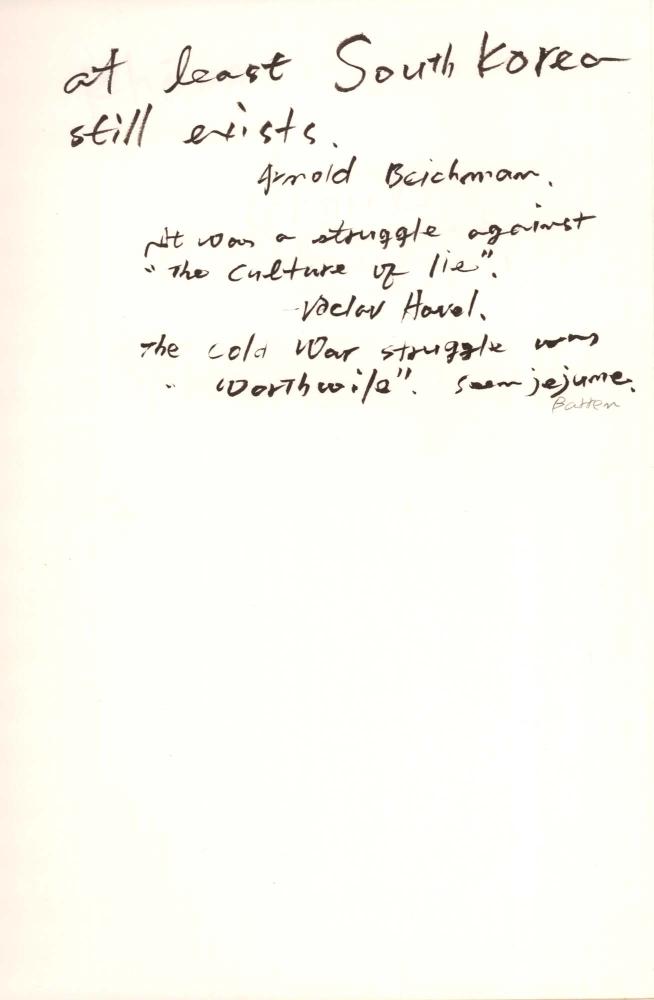 at least South Korea
still exists.
Arnold Beichman.
It was a struggle against
"The Culture of lie".
-Vaclav Havel.
The Cold War struggle was
"Worthwile". Seem jejume.
Batten